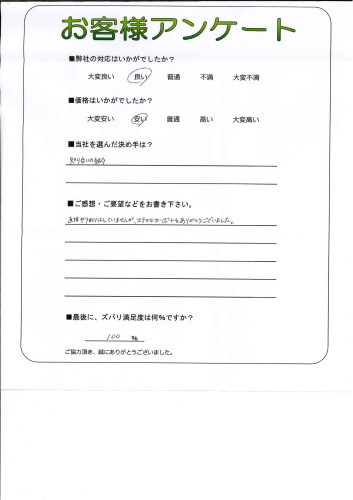 お客様アンケート
■弊社の対応はいかがでしたか？
大変良い 良い 普通 不満 大変不満
■価格はいかがでしたか？
大変安い 安い 普通 高い 大変高い
■当社を選んだ決め手は？
知り合いの紹介
■ご感想・ご要望などをお書き下さい。
直接やり取りはしていませんが、ステキなカーポートをありがとうございました。
■最後に、ズバリ満足度は何％ですか？
100 %
ご協力頂き、誠にありがとうございました。